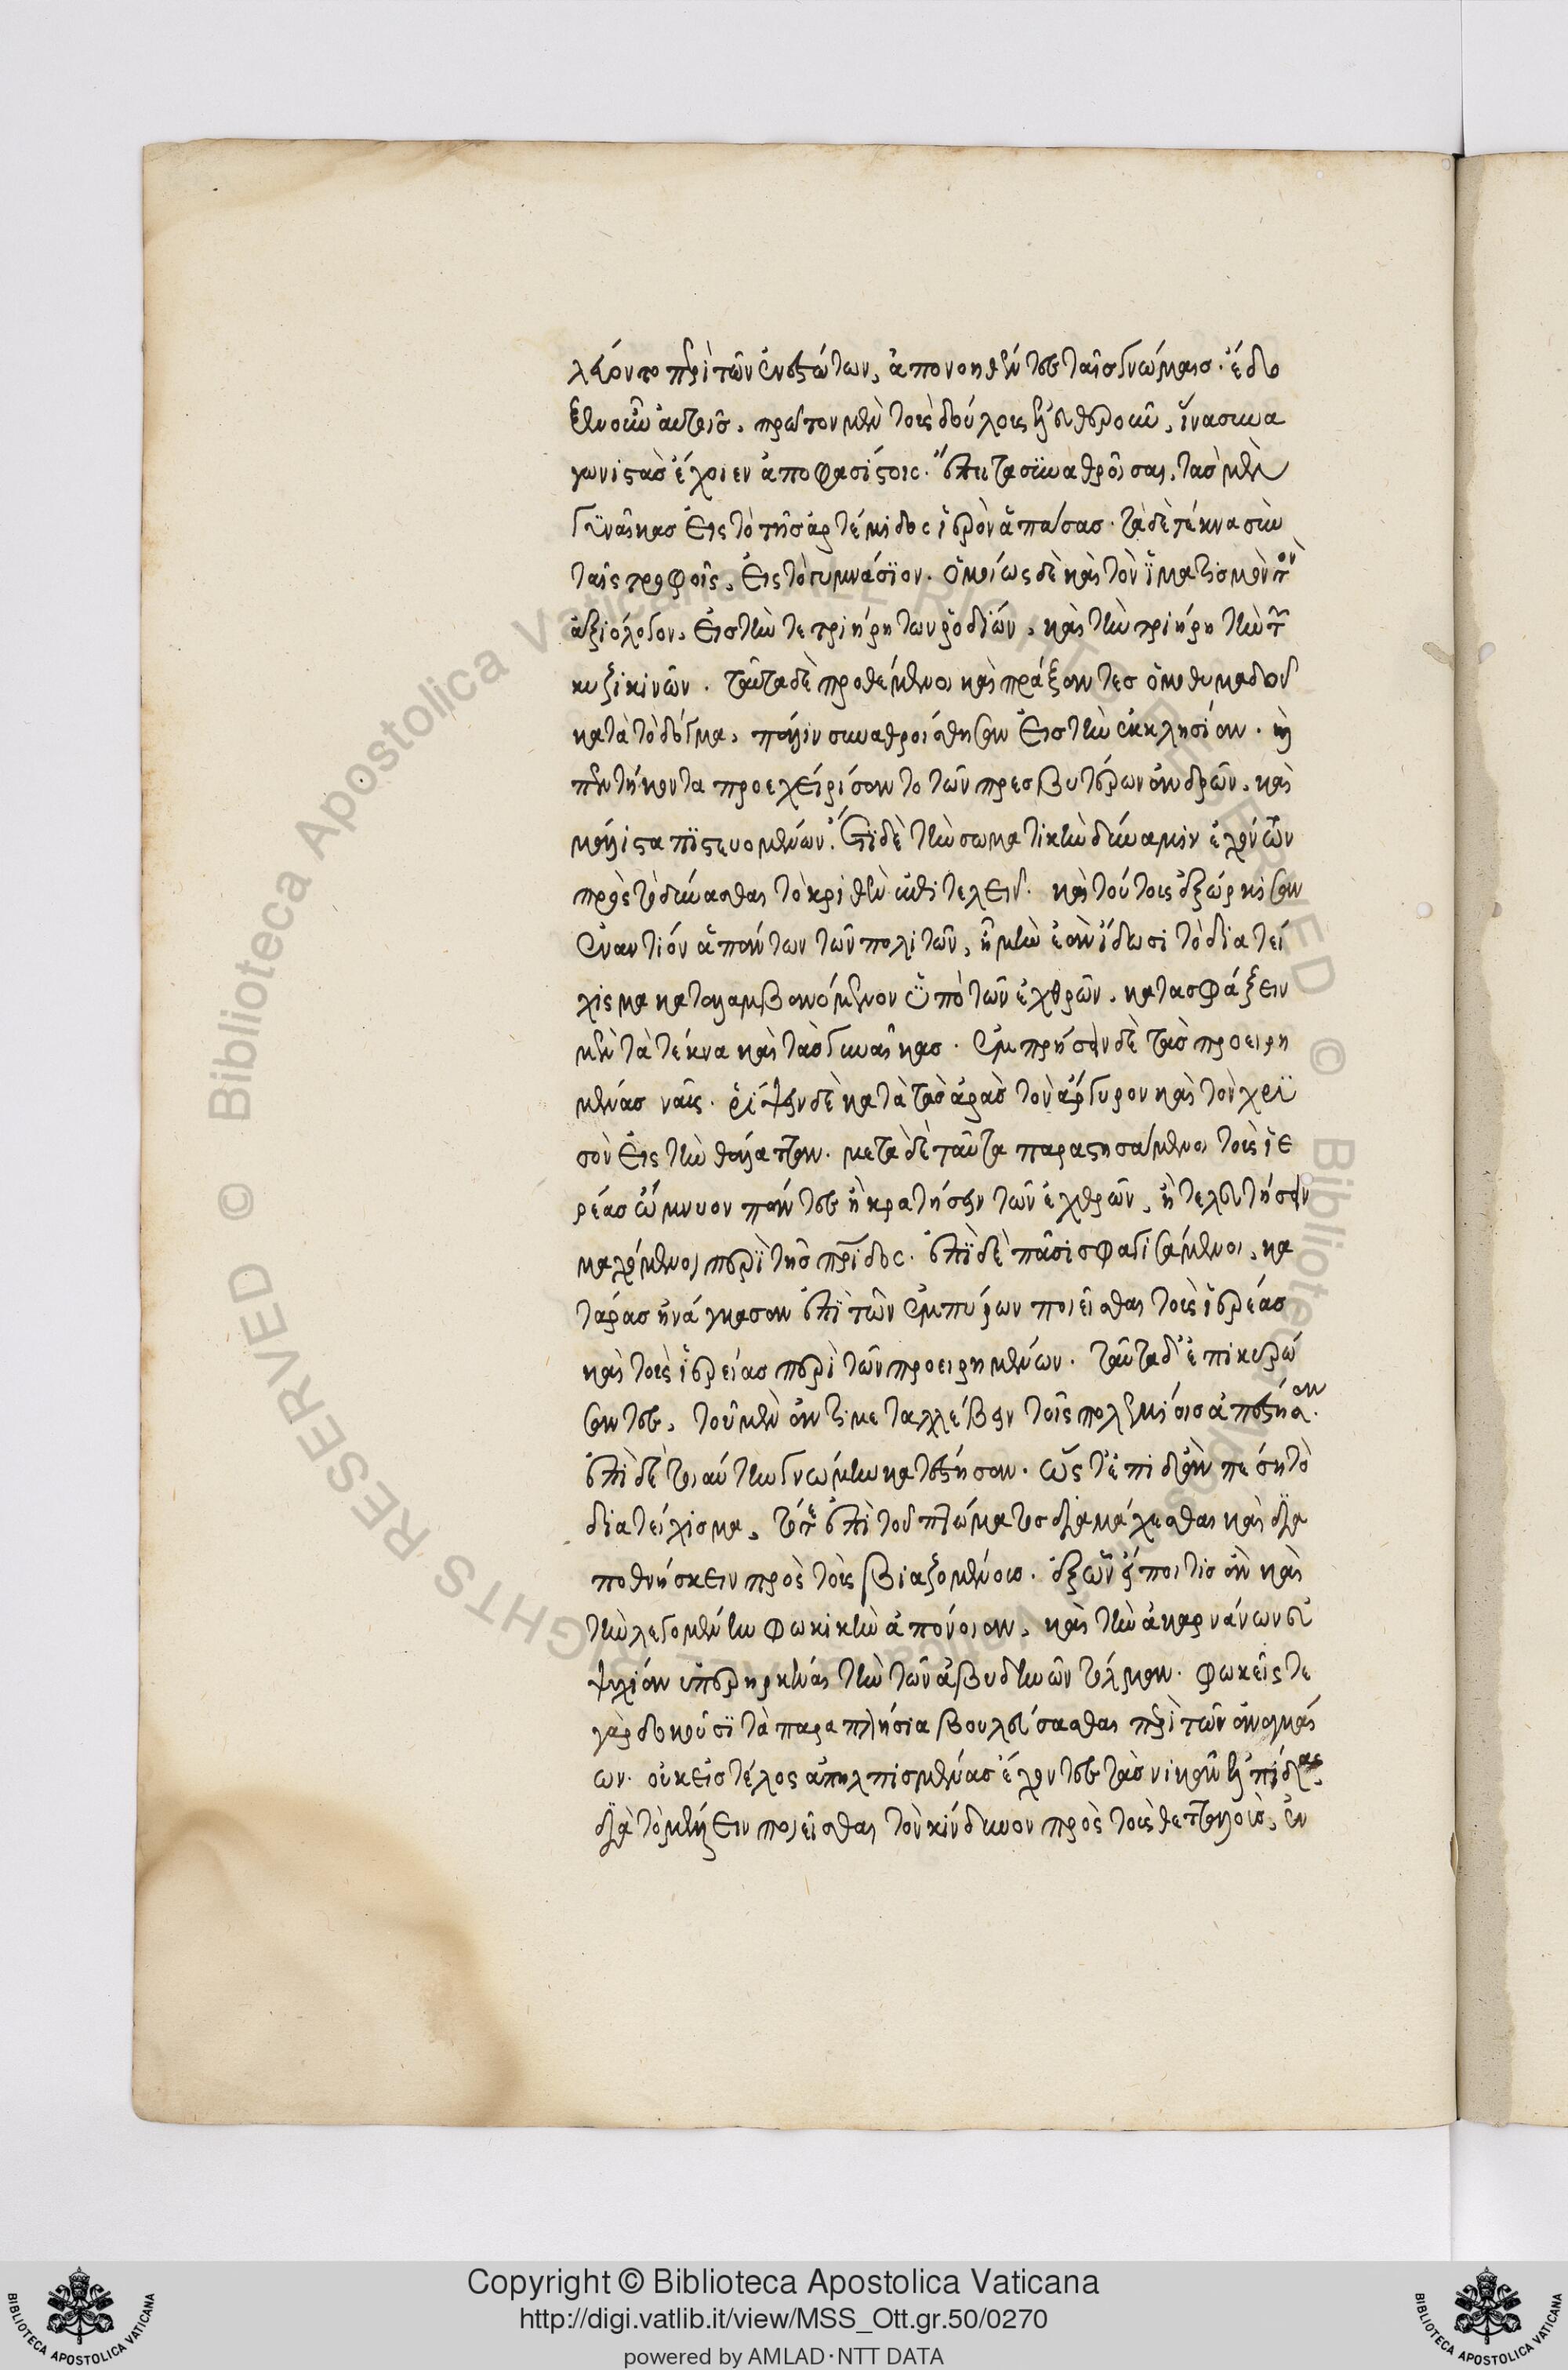 λεύοντο περὶ τῶν ἐνεστώτων, ἀπονοηθέντες ταῖς γνώμαις. ἔδο
ξεν οὖν αὐτοῖς, πρῶτον μὲν τοὺς δούλους ἐλευθεροῦν, ἵνα συνα
γωνιστὰς ἔχοιεν ἀποφασίστοις. ἔπειτα συναθροῖσαι, τὰς μὲν
γυναῖκας εἰς τὸ τῆς ἀρτέμιδος ἱερὸν ἁπάσας. τὰ δὲ τέκνα σὺν
ταῖς τροφοῖς, εἰς τὸ γυμνάσιον. ὁμοίως δὲ καὶ τὸν ἱματισμὸν τὸν
ἀξιόλογον, εἰς τήν τε τριήρη τῶν ῥοδίων, καὶ τὴν τριήρη τὴν τῶν
κυζικινῶν. ταῦτα δὲ προθέμενοι καὶ πράξαντες ὁμοθυμαδὸν
κατὰ τὸ δόγμα, πάλιν συναθροίσθησαν εἰς τὴν ἐκκλησίαν. καὶ
πεντήκοντα προεχείρισαντο τῶν πρεσβυτέρων ἀνδρῶν, καὶ
μάλιστα πιστευομένων. ἔτι δὲ τὴν σωματικὴν δύναμιν ἐχόντων
πρὸς τὸ δύνασθαι τὸ κριθὲν ἐπιτελεῖν. καὶ τούτους ἐξώρκισαν
ἐναντίον ἁπάντων τῶν πολιτῶν, ἦ μὴν ἐὰν ἴδωσι τὸ διατεί
χισμα καταλαμβανόμενον ὑπὸ τῶν ἐχθρῶν, κατασφάξειν
μὲν τὰ τέκνα καὶ τὰς γυναῖκας. ἐμπρήσειν δὲ τὰς προειρη
μένας ναῦς. ῥίψειν δὲ κατὰ τὰς ἀρὰς τὸν ἄργυρον καὶ τὸν χρυ
σὸν εἰς τὴν θάλατταν. μετὰ δὲ ταῦτα παραστησάμενοι τοὺς ἱε
ρέας ὤμνυον πάντες ἢ κρατήσειν τῶν ἐχθρῶν, ἢ τελευτήσειν
μαχόμενοι περὶ τῆς πατρίδος. ἐπὶ δὲ πᾶσι σφαγιασάμενοι, κα
τάρας ἠνάγκασαν ἐπὶ τῶν ἐμπύρων ποιεῖσθαι τοὺς ἱερέας
καὶ τὰς ἱερείας περὶ τῶν προειρημένων. ταῦτα δ' ἐπικυρώ
σαντες, τοῦ μὲν ἀντιμεταλλεύειν τοῖς πολεμίοις ἀπέστησαν.
ἐπὶ δὲ τοιαύτην γνώμην κατέστησαν. ὥστ' ἐπειδὰν πέσῃ τὸ
διατείχισμα, τότε ἐπὶ τοῦ πτώματος διαμάχεσθαι καὶ δια
ποθνήσκειν πρὸς τοὺς βιαζομένους. ἐξ ὧν εἴποι τις ἂν καὶ
τὴν λεγομένην φωκικὴν ἀπόνοιαν, καὶ τὴν ἀκαρνάνων εὐ
ψυχίαν ὑπερηρκέναι τὴν τῶν ἀβυδηνῶν τόλμαν. φωκεῖς τε
γὰρ δοκοῦσι τὰ παραπλήσια βουλεύσασθαι περὶ τῶν ἀναγκαί
ων. οὐκ εἰς τέλος ἀπηλπισμένας ἔχοντες τὰς νικᾶν ἐλπίδας.
διὰ τὸ μέλλειν ποιεῖσθαι τὸν κίνδυνον πρὸς τοὺς θετταλούς, ἐν
Copyright © Biblioteca Apostolica Vaticana
http://digi.vatlib.it/view/MSS_Ott.gr.50/0270
powered by AMLAD·NTT DATA